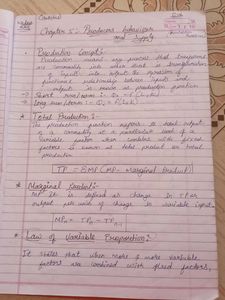 Chapter 5: Producer behaviour
and Supply
Production Concept:-
Production means any process that transforms
one commodity into other that is transformation
of Inputs into output the expression of
functional relationship between Inputs and
output is known as production function
Total Production :-
The production function refers to total output
of a commodity at a particular level of a
Variable factor when combined with fixed
factors is known as total product or total
production.
TP = ΣMP (MP- Marginal Product)
Marginal Product :-
MP it is defined as change in TP or
output per unit of change in variable input.
MPn = TPn - TPn-1
Law of Variable Proportion:-
It states that when more & more variable
factors are combined with fixed factors,